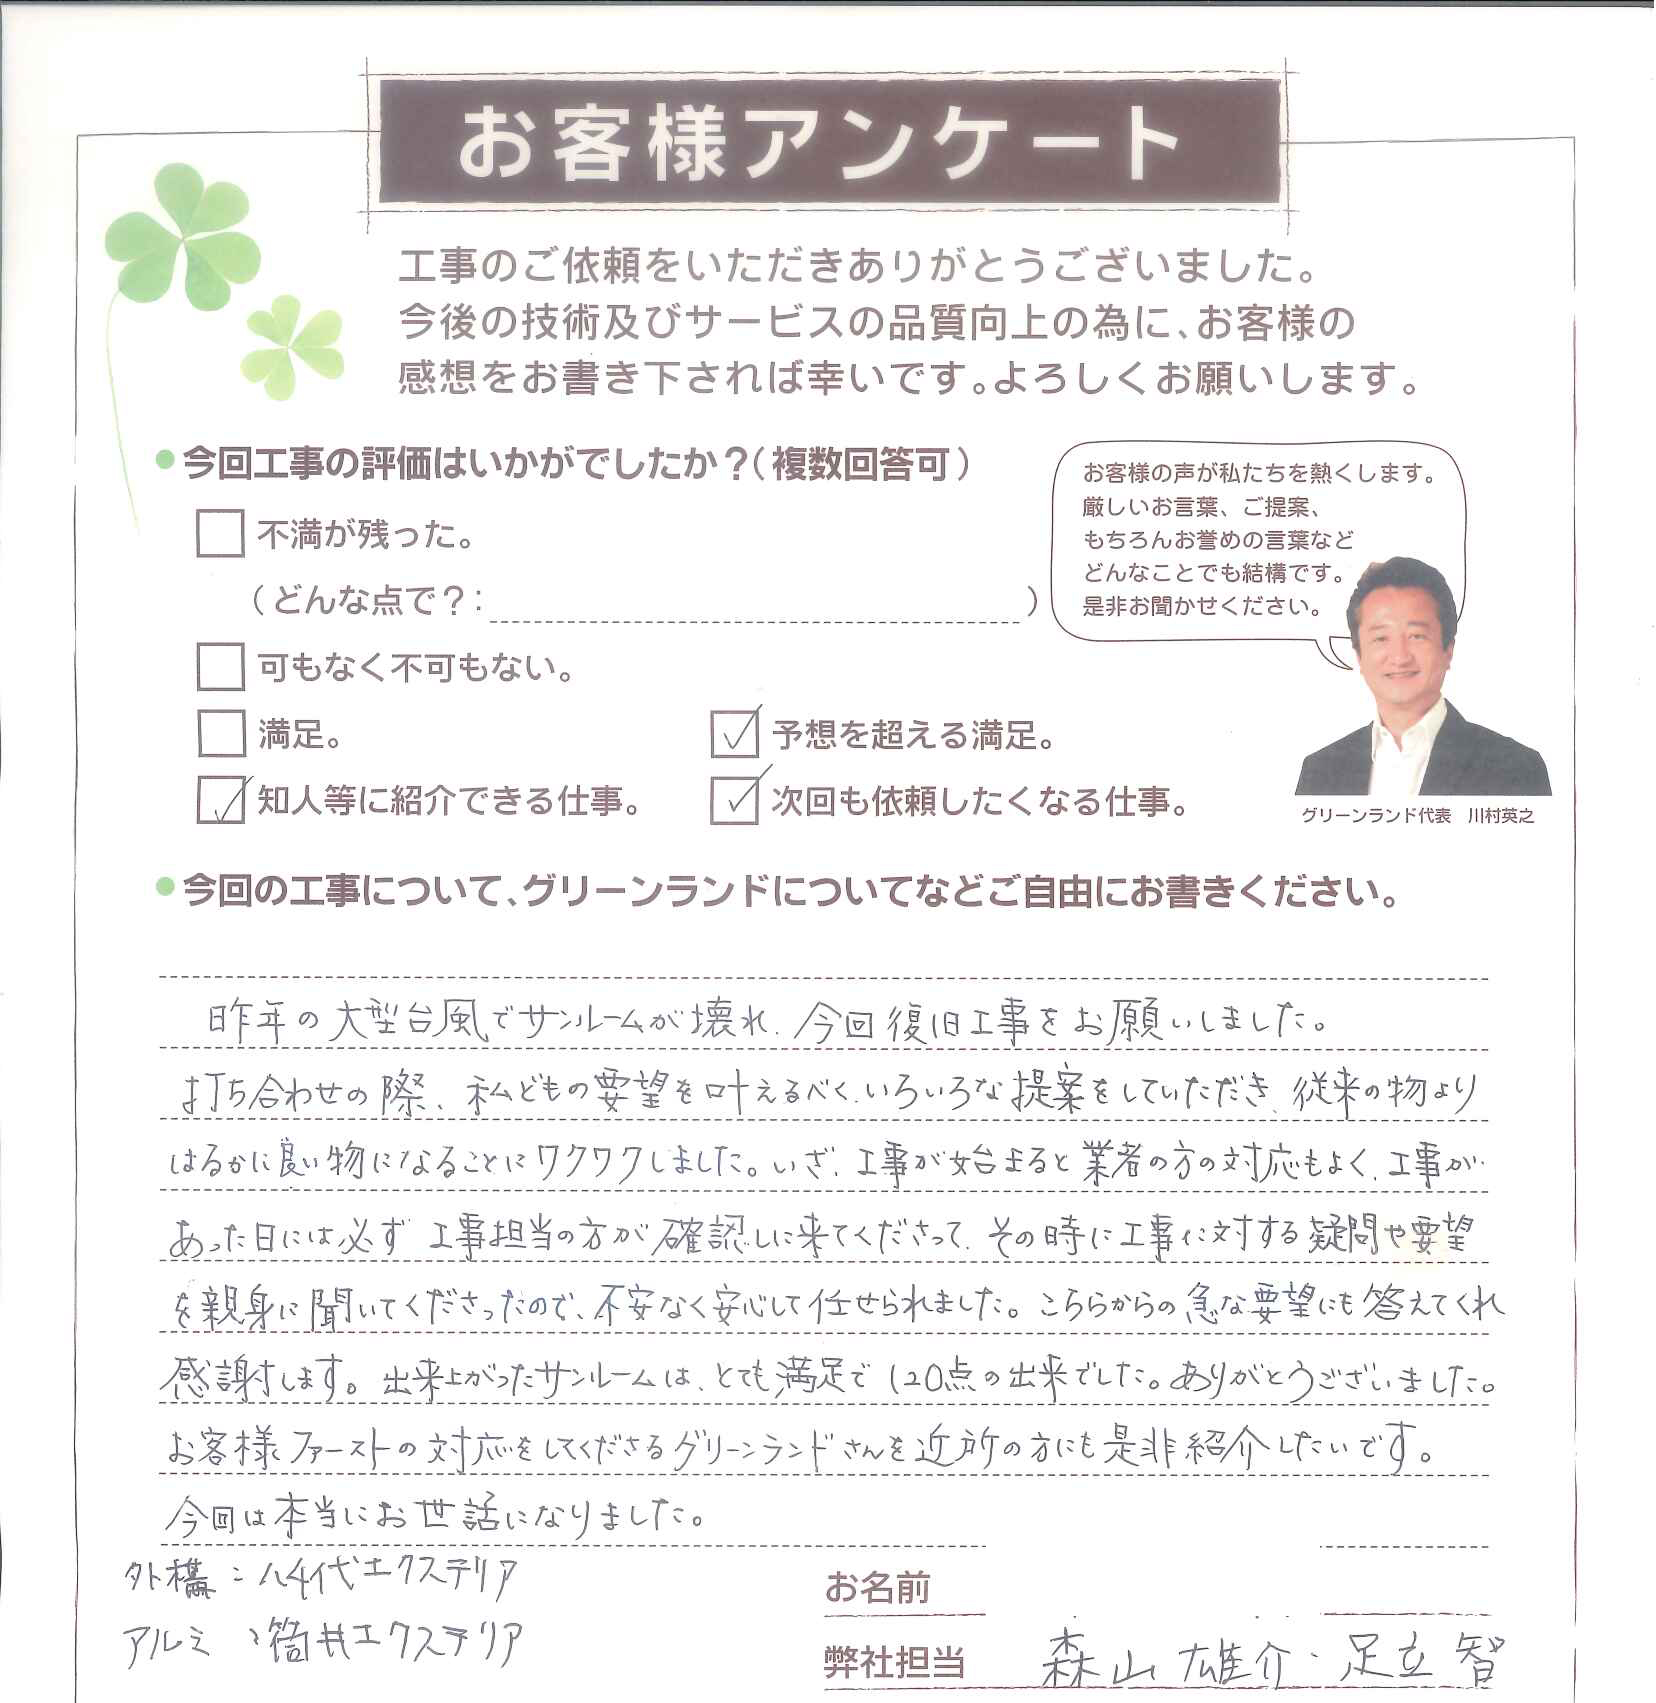 お客様アンケート
工事のご依頼をいただきありがとうございました。
今後の技術及びサービスの品質向上の為に、お客様の
感想をお書き下されば幸いです。よろしくお願いします。
今回工事の評価はいかがでしたか？（複数回答可）
不満が残った。
（どんな点で？： ）
可もなく不可もない。
満足。
予想を超える満足。
知人等に紹介できる仕事。
次回も依頼したくなる仕事。
お客様の声が私たちを熱くします。
厳しいお言葉、ご提案、
もちろんお誉めの言葉など
どんなことでも結構です。
是非お聞かせください。
グリーンランド代表　川村英之
今回の工事について、グリーンランドについてなどご自由にお書きください。
昨年の大型台風でサンルームが壊れ、今回復旧工事をお願いしました。
打ち合わせの際、私どもの要望を叶えるべく、いろいろな提案をしていただき、従来の物より
はるかに良い物になることにワクワクしました。いざ、工事が始まると業者の方の対応もよく、工事が
あった日には必ず工事担当の方が確認しに来てくださって、その時に工事に対する疑問や要望
を親身に聞いてくださったので、不安なく安心して任せられました。こちらからの急な要望にも答えてくれ
感謝します。出来上がったサンルームは、とても満足で120点の出来でした。ありがとうございました。
お客様ファーストの対応をしてくださるグリーンランドさんを近所の方にも是非紹介したいです。
今回は本当にお世話になりました。
外構：八千代エクステリア
アルミ：筒井エクステリア
お名前
弊社担当　森山雄介・足立智